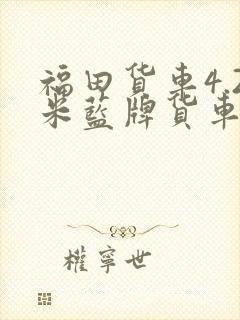 福田货车4.2
米蓝牌货车
權寧世